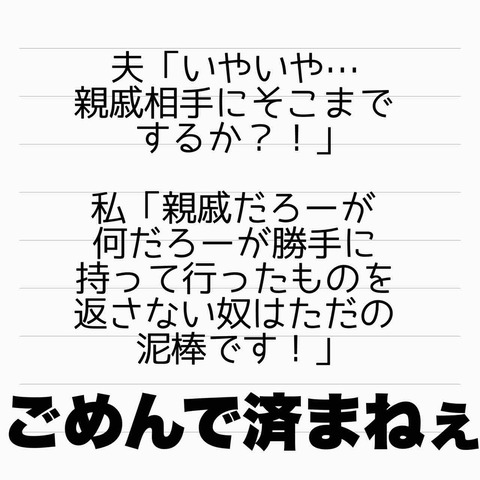 夫「いやいや…
親戚相手にそこまで
するか？！」
私「親戚だろーが
何だろーが勝手に
持って行ったものを
返さない奴はただの
泥棒です！」
ごめんで済まねぇ